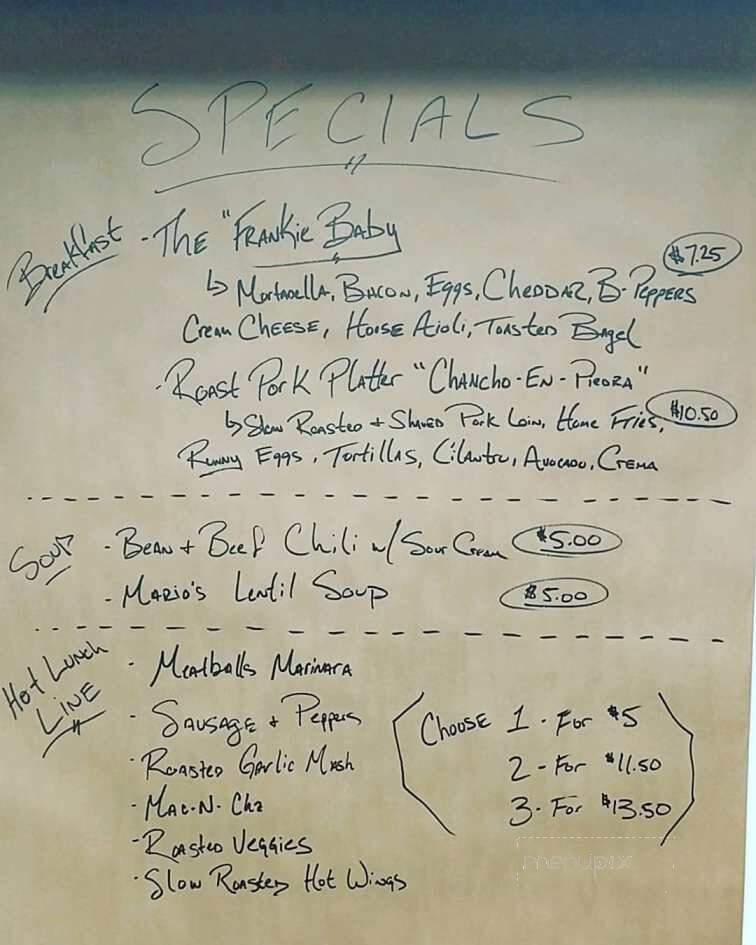 SPECIALS
Breakfast - The "Frankie Baby
$7.25
↳ Mortadella, Bacon, Eggs, Cheddar, B-Peppers
Cream Cheese, House Aioli, Toasted Bagel
- Roast Pork Platter "Chancho-En-Piedra"
↳ Slow Roasted + Shaved Pork Loin, Home Fries, $10.50
Runny Eggs, Tortillas, Cilantro, Avocado, Crema
Soup - Bean + Beef Chili w/ Sour Cream $5.00
- Mario's Lentil Soup $5.00
Hot Lunch Line
- Meatballs Marinara
- Sausage + Peppers
- Roasted Garlic Mash
- Mac-N-Chz
- Roasted Veggies
- Slow Roasted Hot Wings
Choose 1 - For $5
2 - For $11.50
3 - For $13.50
menupix